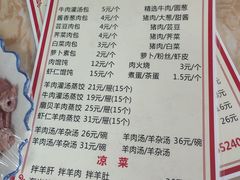 牛肉灌汤包 5元/个 精选牛肉/圆葱
酱香葱肉包 5元/个 猪肉/大葱/甜酱
芸豆肉包 5元/个 猪肉/芸豆
荠菜肉包 5元/个 猪肉/荠菜
白菜肉包 3元/个 猪肉/白菜
萝卜素包 2元/个 萝卜/粉丝/虾皮
肉馄饨 12元/个 肉火烧 3元/个
虾仁馄饨 15元/个 煮蛋/茶蛋 1.5元/个
羊肉灌汤蒸饺 21元/屉(15个)
牛肉灌汤蒸饺 19元/屉(15个)
扇贝羊肉蒸饺 26元/屉(15个)
虾仁羊肉蒸饺 31元/屉(15个)
羊肉汤/羊杂汤 26元/碗
羊肉汤/羊杂汤 31元/碗
羊肉汤/羊杂汤 36元/碗
凉菜
拌羊肝 拌羊肉 拌羊肚
5240